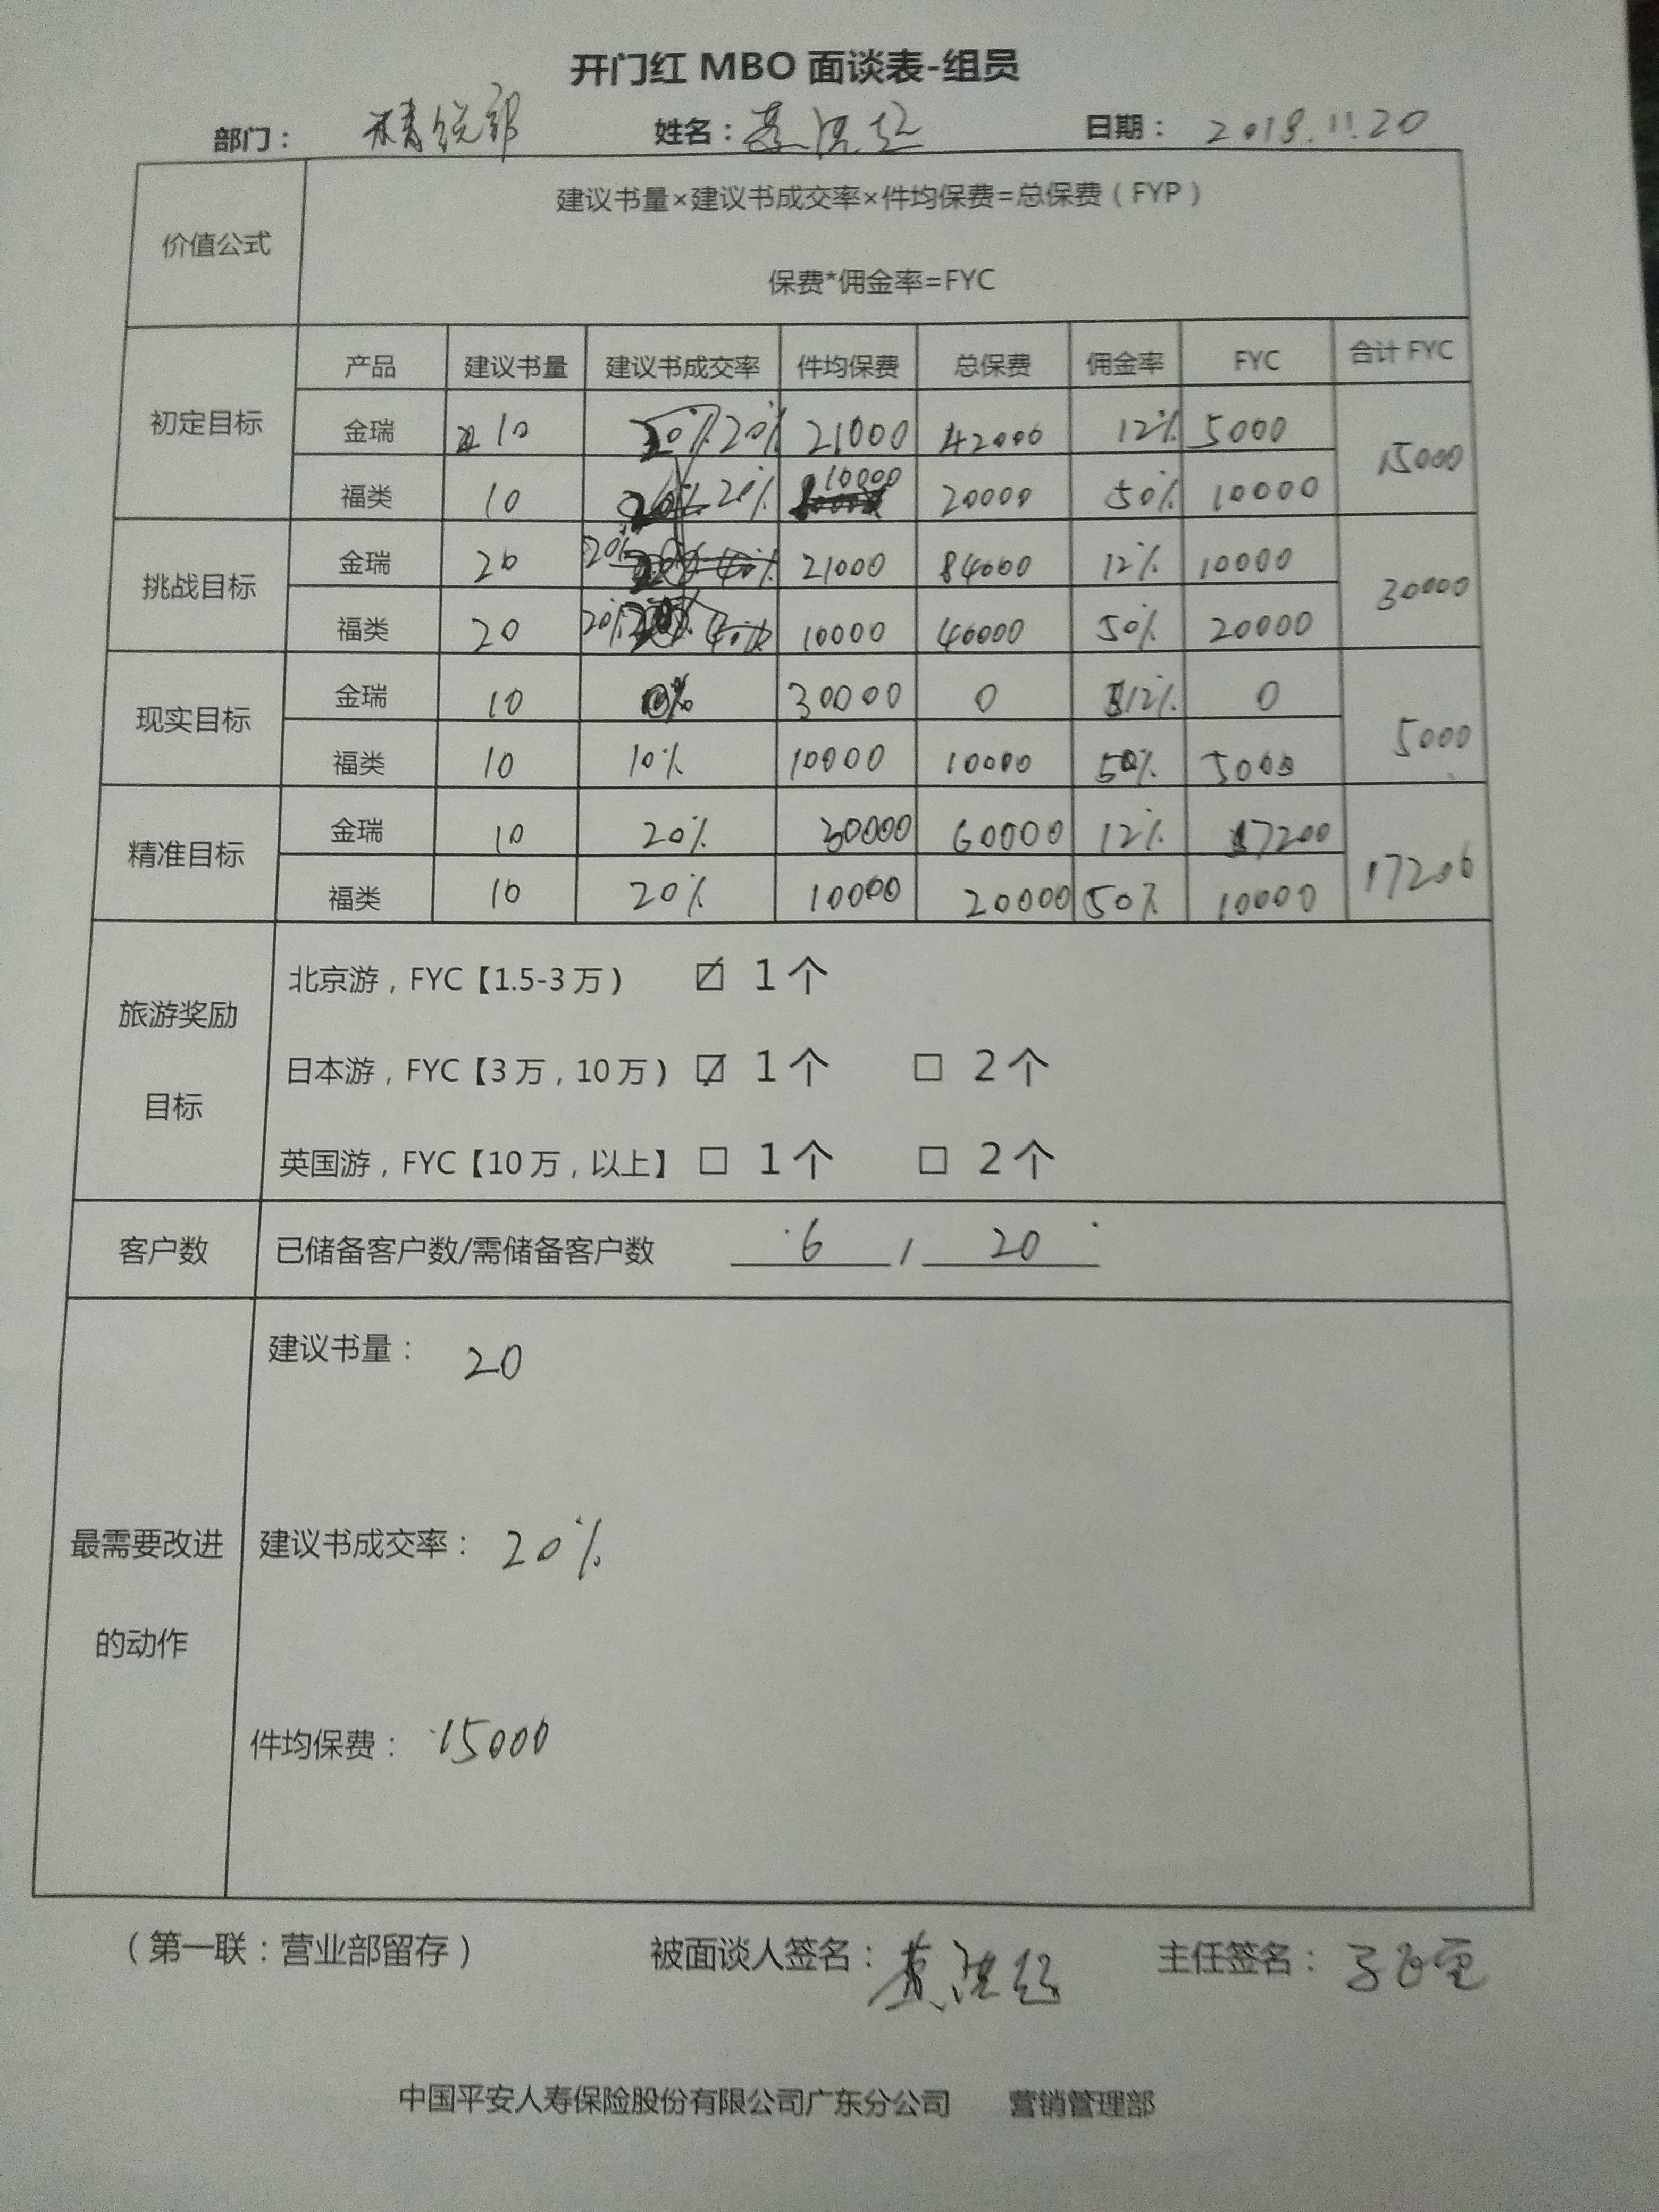 开门红 MBO 面谈表-组员
部门： 精锐部 姓名： 日期： 2018.11.20
价值公式
建议书量×建议书成交率×件均保费=总保费（FYP）
保费*佣金率=FYC
产品 建议书量 建议书成交率 件均保费 总保费 佣金率 FYC 合计 FYC
初定目标
金瑞 10 20% 21000 42000 12% 5000
15000
福类 10 20% 10000 20000 50% 10000
挑战目标
金瑞 20 20% 21000 84000 12% 10000
30000
福类 20 20% 10000 40000 50% 20000
现实目标
金瑞 10 0% 30000 0 12% 0
5000
福类 10 10% 10000 10000 50% 5000
精准目标
金瑞 10 20% 30000 60000 12% 7200
17200
福类 10 20% 10000 20000 50% 10000
旅游奖励
目标
北京游，FYC【1.5-3 万） ☑ 1 个
日本游，FYC【3 万，10 万） ☑ 1 个 □ 2 个
英国游，FYC【10 万，以上】 □ 1 个 □ 2 个
客户数 已储备客户数/需储备客户数 6 / 20
最需要改进
的动作
建议书量： 20
建议书成交率： 20%
件均保费： 15000
（第一联：营业部留存） 被面谈人签名： 主任签名：
中国平安人寿保险股份有限公司广东分公司 营销管理部